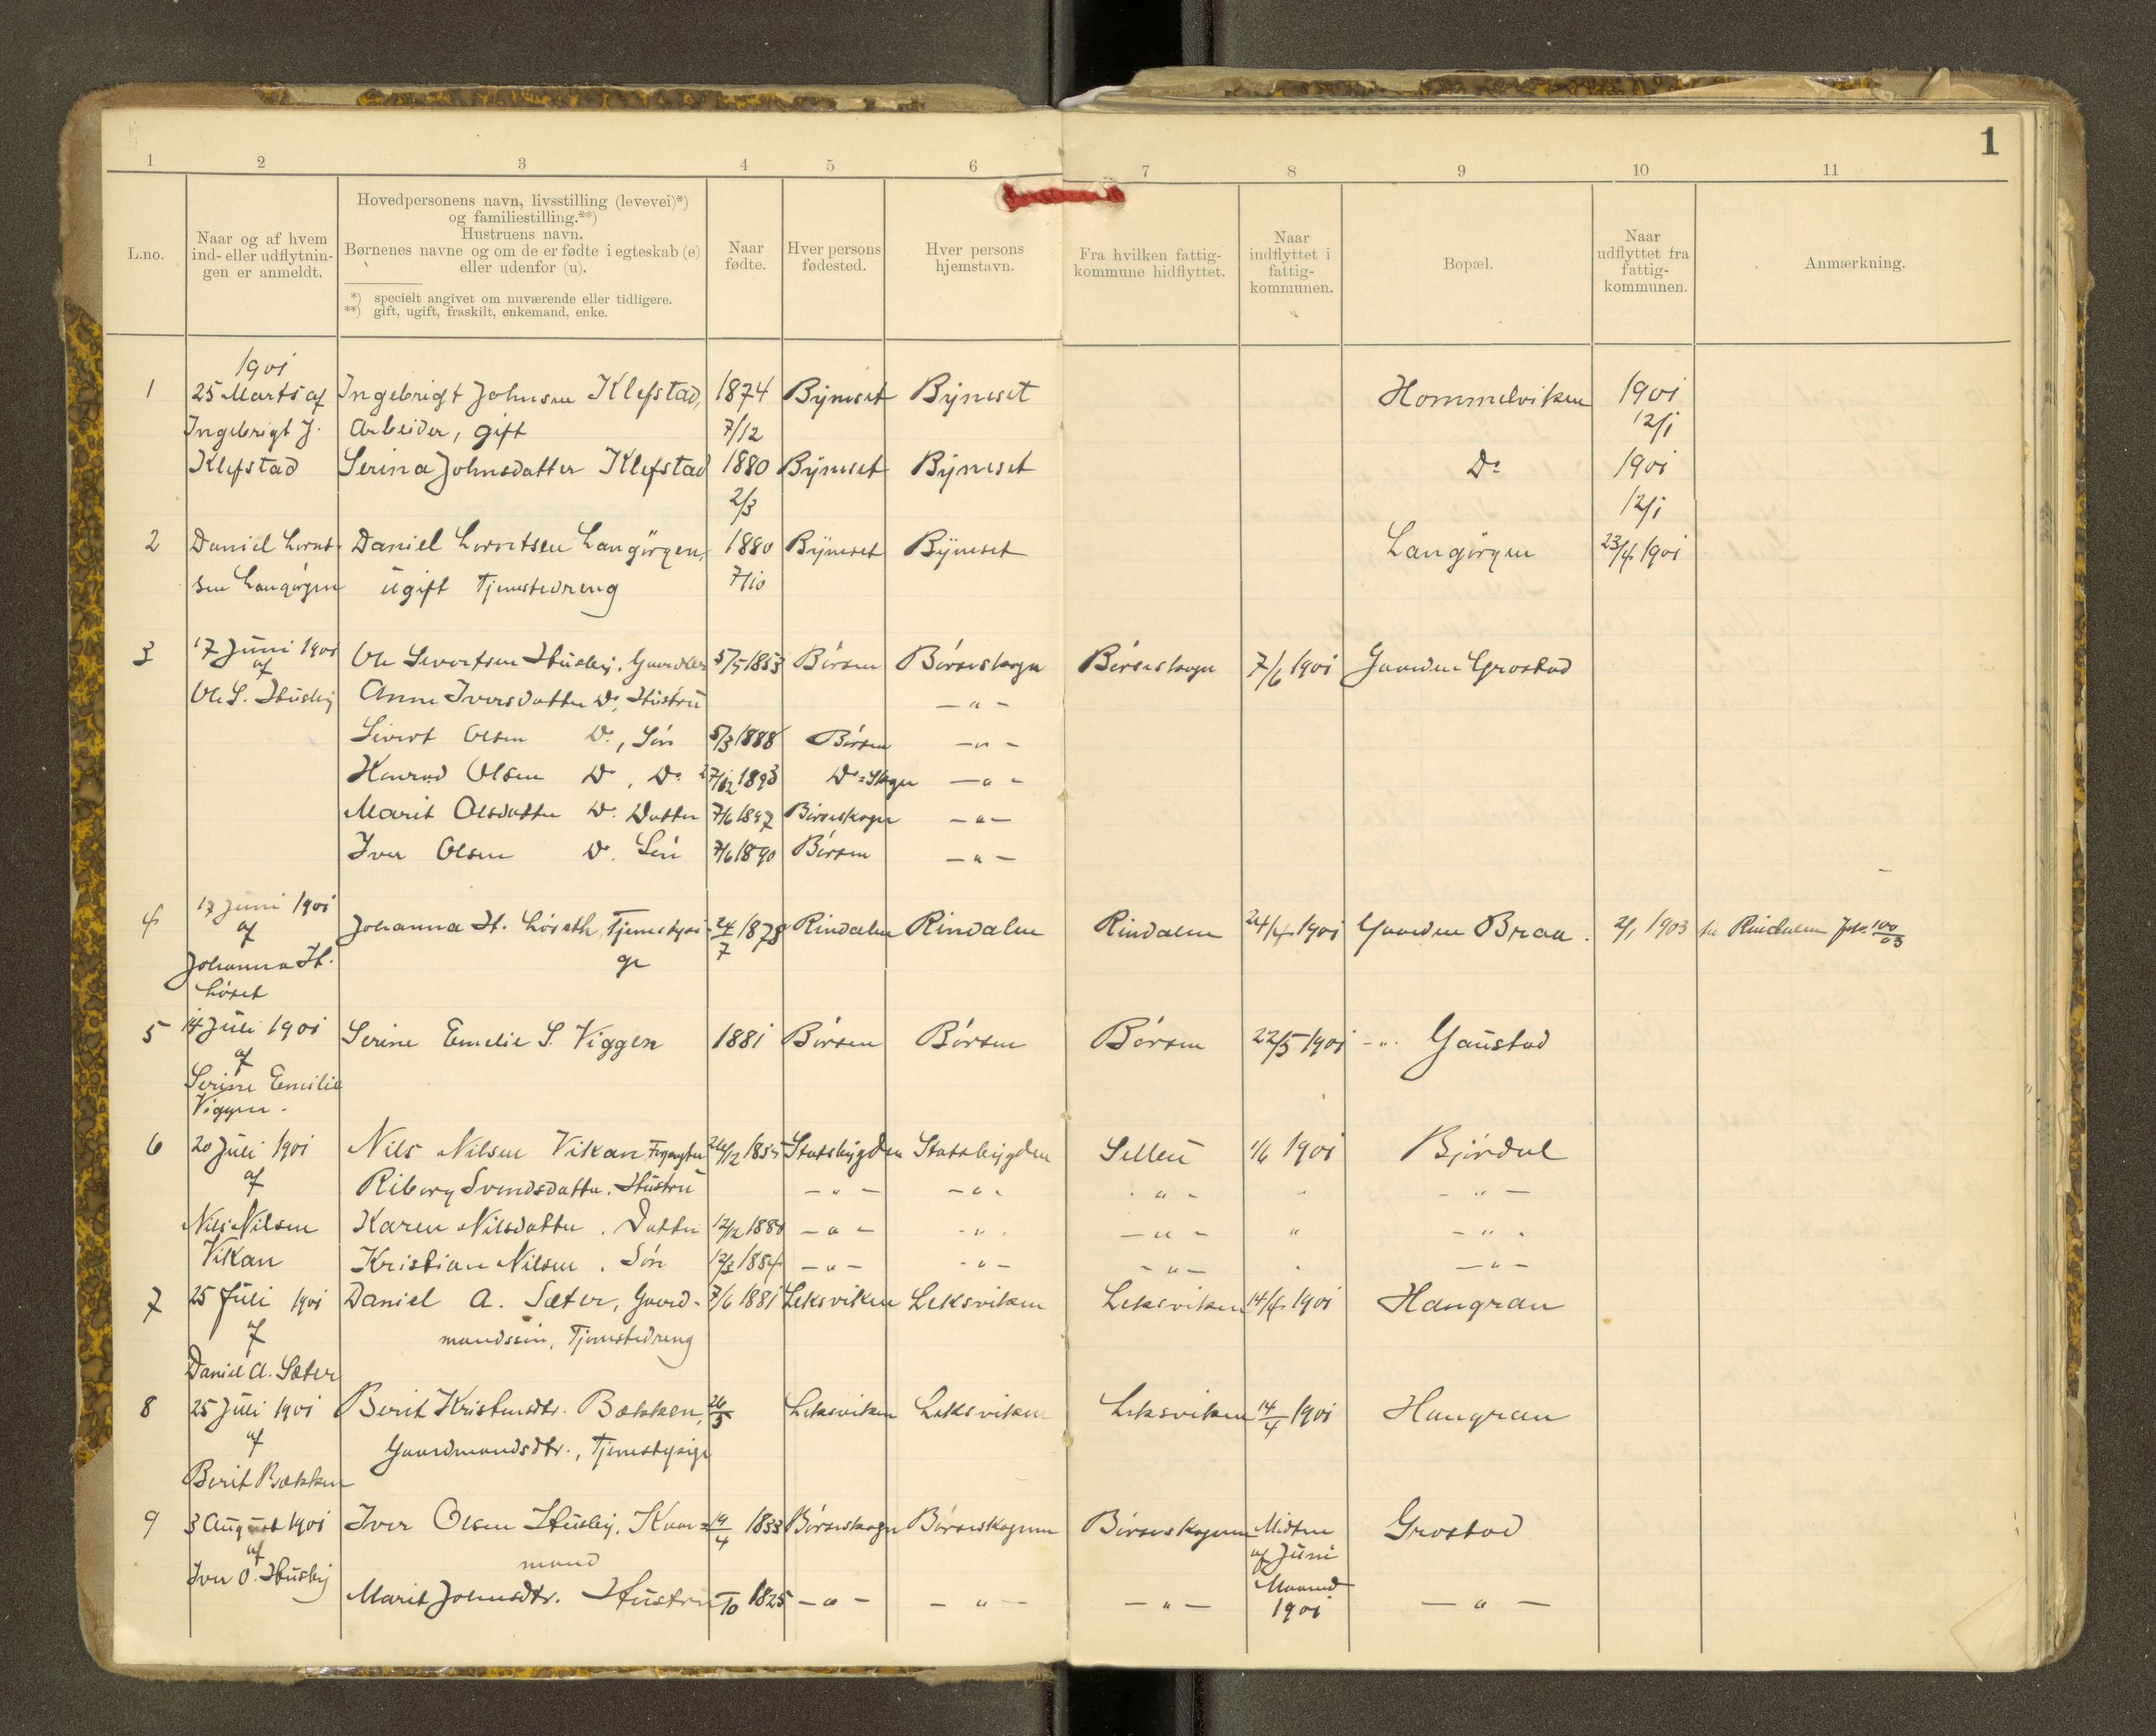 1
1 2 3 4 5 6 7 8 9 10 11
L.no.
Naar og af hvem
ind- eller udflytnin-
gen er anmeldt.
Hovedpersonens navn, livsstilling (levevei)*)
og familiestilling.**)
Hustruens navn.
Børnenes navne og om de er fødte i egteskab (e)
eller udenfor (u).
*) specielt angivet om nuværende eller tidligere.
**) gift, ugift, fraskilt, enkemand, enke.
Naar
fødte.
Hver persons
fødested.
Hver persons
hjemstavn.
Fra hvilken fattig-
kommune hidflyttet.
Naar
indflyttet i
fattig-
kommunen.
Bopæl.
Naar
udflyttet fra
fattig-
kommunen.
Anmærkning.
1901
1 25 Marts af Ingebrigt Johnsen Klefstad, 1874 Býneset Býneset Hommelviken 1901
Ingebrigt J. Arbeider, gift 7/12 12/1
Klefstad Serina Johnsdatter Klefstad 1880 Býneset Býneset Do 1901
2/3 12/1
2 Daniel Lornt- Daniel Lorntsen Langørgen, 1880 Býneset Býneset Langørgen 23/4 1901
sen Langørgen ugift Tjenestedreng 7/10
3 17 Juni 1901 Ole Sivertsen Husby, Gaardbr 5/5 1853 Børsen Børseskogn Børseskogn 7/6 1901 Gaarden Grostad
af
Ole S. Husby Anne Iversdatter Do, Hustru — " —
Sivert Olsen Do, Søn 5/3 1888 Børsen — " —
Konrad Olsen Do, Do 27/12 1893 Do=Skogn — " —
Marit Olsdatter Do. Datter 7/6 1897 Børseskogn — " —
Iver Olsen Do. Søn 7/6 1890 Børsen — " —
17 Juni 1901
4 af Johanna H. Løseth, Tjenestepi- 24/7 1878 Rindalen Rindalen Rindalen 24/4 1901 Gaarden Braa. 2/1 1903 til Rindalen Jno. 100/03
Johanna H. ge
Løset
5 14 Juli 1901 Serine Emelie S. Viggen 1881 Børsen Børsen Børsen 22/5 1901 - " - Gaustad
af
Serine Emilie
Viggen.
6 20 Juli 1901 Nils Nilsen Vikan 24/12 1855 Stadsbygden Stadsbygden Selleu 1/6 1901 Bjørdal
af Riborg Svendsdatter. Hustru — " — — " — - " - " - " —
Nils Nilsen Karen Nilsdatter. Datter 12/2 1880 — " — - " - — " - " - " -
Vikan Kristian Nilsen. Søn 12/3 1884 — " — - " - - " - " — " —
7 25 Juli 1901 Daniel A. Sæter, Gaard- 7/6 1881 Leksviken Leksviken Leksviken 14/4 1901 Hangran
af mandssøn, Tjenestedreng
Daniel A. Sæter
8 25 Juli 1901 Berit Kristensdtr. Bækken, 26/5 Leksviken Leksviken Leksviken 14/4 1901 Hangran
af Gaardmandsdtr., Tjenestepige
Berit Bækken
9 3 August 1901 Iver Olsen Husby. Kaar= 19/4 1833 Børseskogn Børseskognen Børseskognen Midten Grostad
af mand af Juni
Iver O. Husby Maaned
Marit Johnsdtr. Hustru /10 1825 — " — — " — — " — 1901 — " —